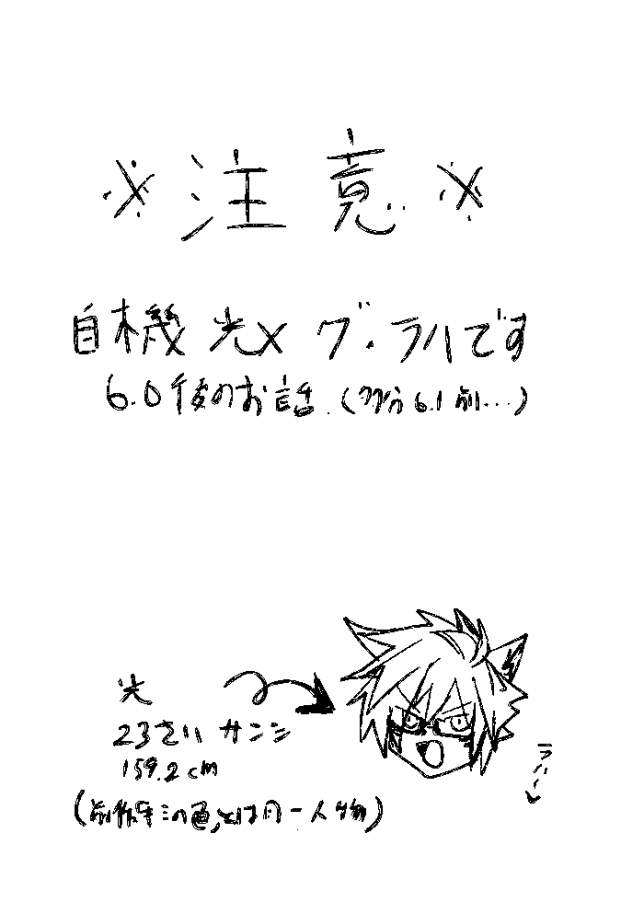 ※注意※
自機光×グ・ラハです
6.0後のお話(多分6.1前…)
光
23さい サンシ
159.2cm
ラハ〜
同一人物)